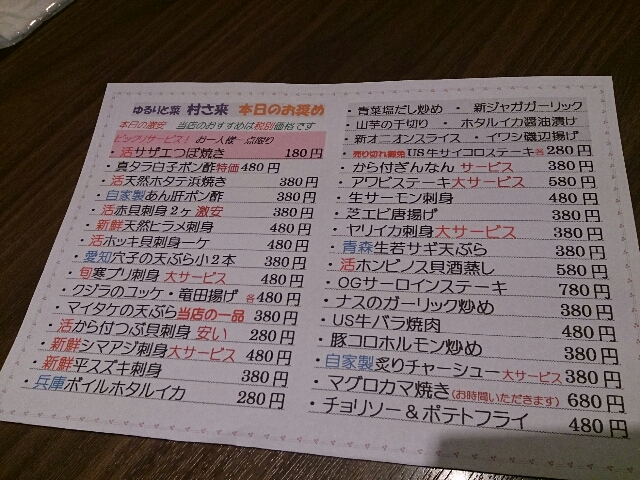 ゆるりと菜 村さ来 本日のお奨め
本日の激安 当店のおすすめは税別価格です
ビックリサービス！ お一人様一点限り
・活サザエつぼ焼き 180円
・真タラ白子ポン酢特価480円
・活天然ホタテ浜焼き 380円
・自家製あん肝ポン酢 380円
・活赤貝刺身2ヶ激安 380円
・新鮮天然ヒラメ刺身 480円
・活ホッキ貝刺身一ケ 480円
・愛知穴子の天ぷら小2本 380円
・旬寒ブリ刺身 大サービス 480円
・クジラのユッケ・竜田揚げ 各480円
・マイタケの天ぷら当店の一品 380円
・活から付つぶ貝刺身 安い 280円
・新鮮シマアジ刺身大サービス 480円
・新鮮平スズキ刺身 380円
・兵庫ボイルホタルイカ 280円
・青葉塩だし炒め ・ 新ジャガガーリック
・山芋の千切り ・ ホタルイカ醤油漬け
・新オニオンスライス ・ イワシ磯辺揚げ
・売り切れ御免 US牛サイコロステーキ各280円
・から付ぎんなん サービス 380円
・アワビステーキ大サービス 580円
・生サーモン刺身 480円
・芝エビ唐揚げ 380円
・ヤリイカ刺身大サービス 380円
・青森生若サギ天ぷら 380円
・活ホンビノス貝酒蒸し 580円
・OGサーロインステーキ 780円
・ナスのガーリック炒め 380円
・US牛バラ焼肉 480円
・豚コロホルモン炒め 380円
・自家製炙りチャーシュー大サービス 380円
・マグロカマ焼き(お時間いただきます) 680円
・チョリソー＆ポテトフライ 480円